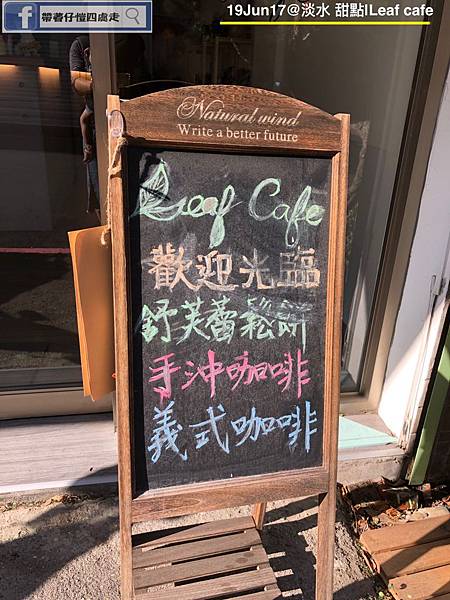 帶著仔愷四處走
19Jun17@淡水 甜點ILeaf cafe
Natural wind
Write a better future
Leaf Cafe
歡迎光臨
舒芙蕾鬆餅
手沖咖啡
義式咖啡